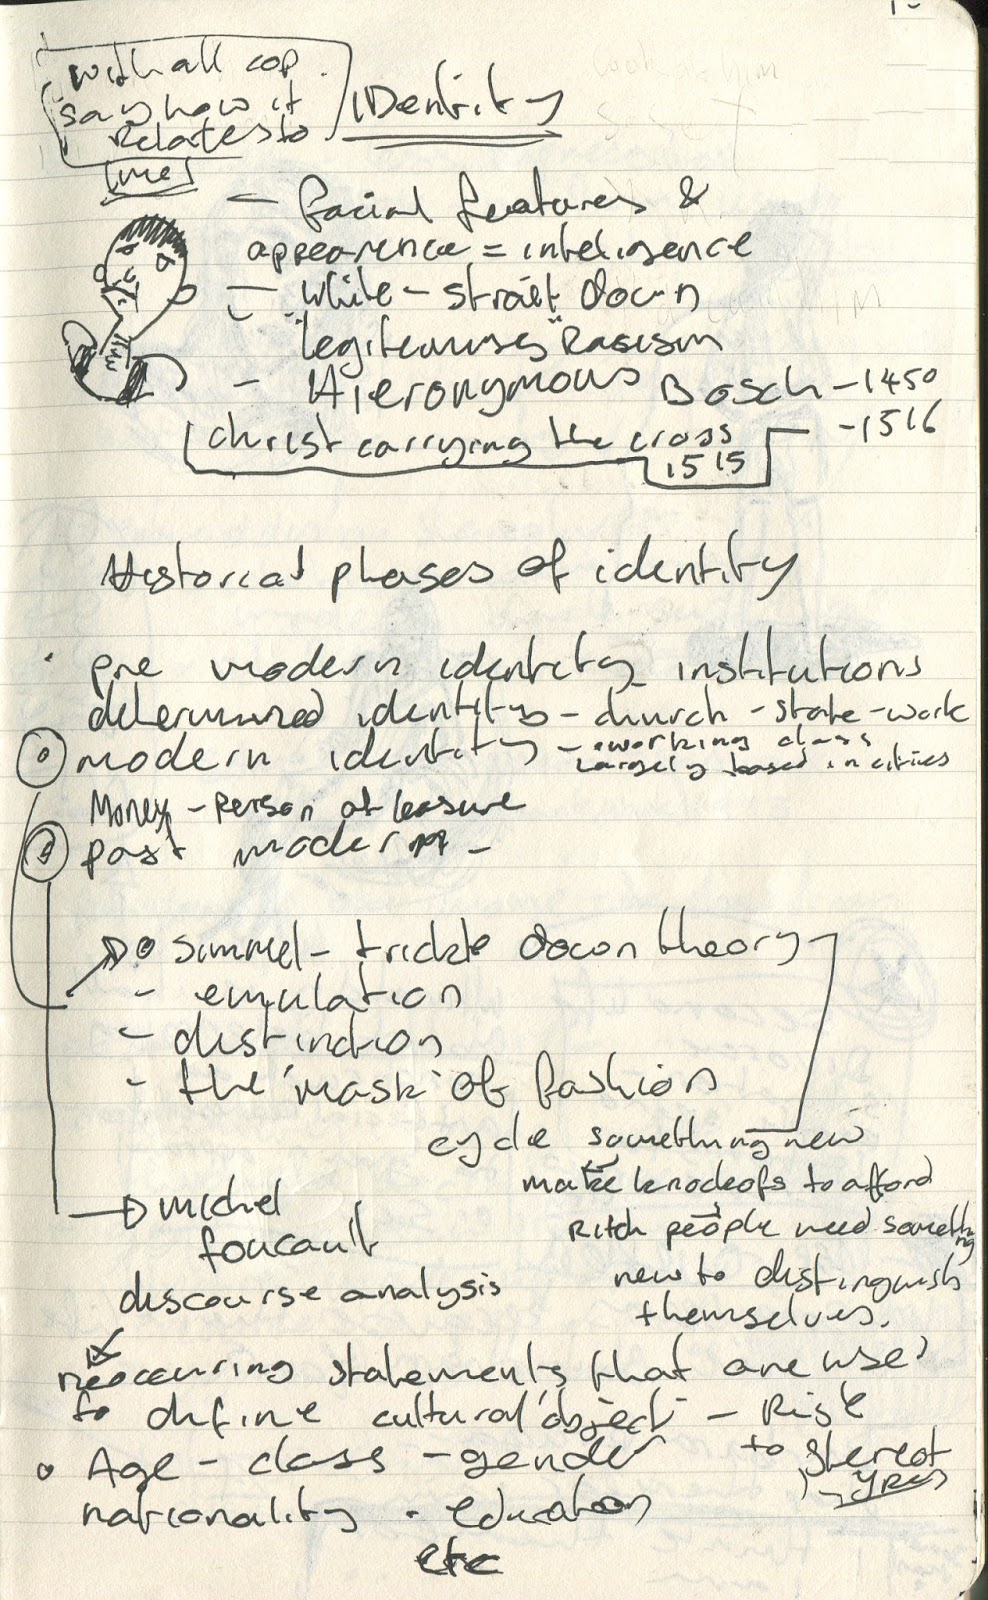 with all cop
say how it
Relates to
me
IDentity
- facial features &
appearence = inteligence
- white - strait down
"legitemises" Rasism
- Hieronymous Bosch - 1450
- 1516
christ carrying the cross
1515
Historical phases of identity
· pre modern identity institutions
determined identity - church - state - work
modern identity - working class
largely based in citites
Money - Person at leasure
post modern -
Simmel - trickle down theory
- emulation
- distinction
- the 'mask' of fashion
cycle something new
make knockofs to afford
Ritch people need something
new to distinguish
themselves.
Michel
foucault
discourse analysis
reoccuring statements that are used
to define cultural 'object' - Risk
to stereotypes
• Age - class - gender
nationality · education
etc